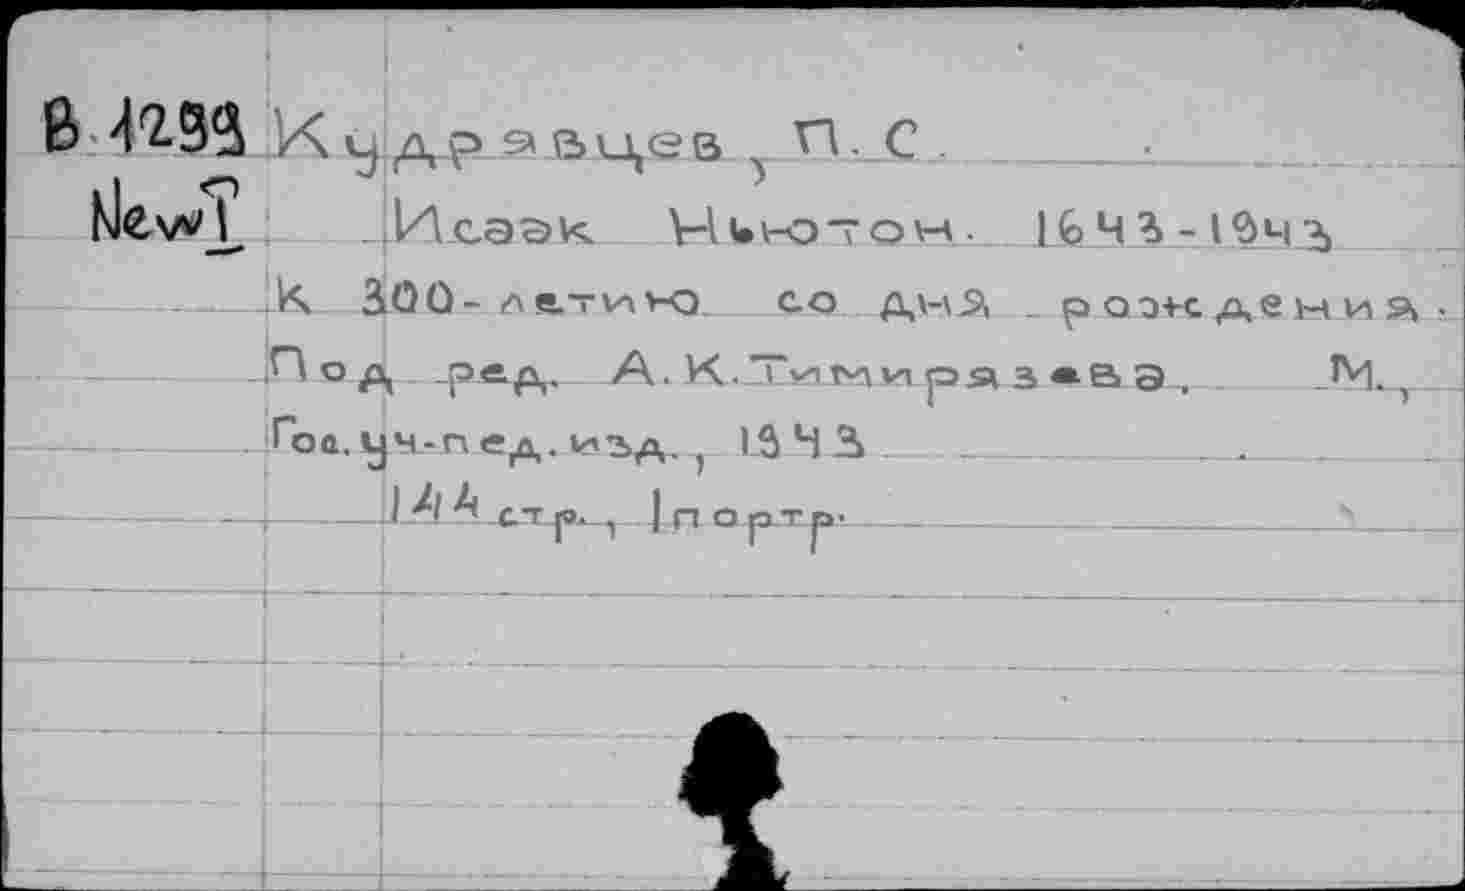 В 1299 Кудрявцев, П. С.
NewT Исаак Ньютон. 1643-1943
К 300-летию со дня рождения.
Под ред. А.К.Тимирязева. М.,
Гос.уч-пед.изд., 1943
144 стр., 1 портр.